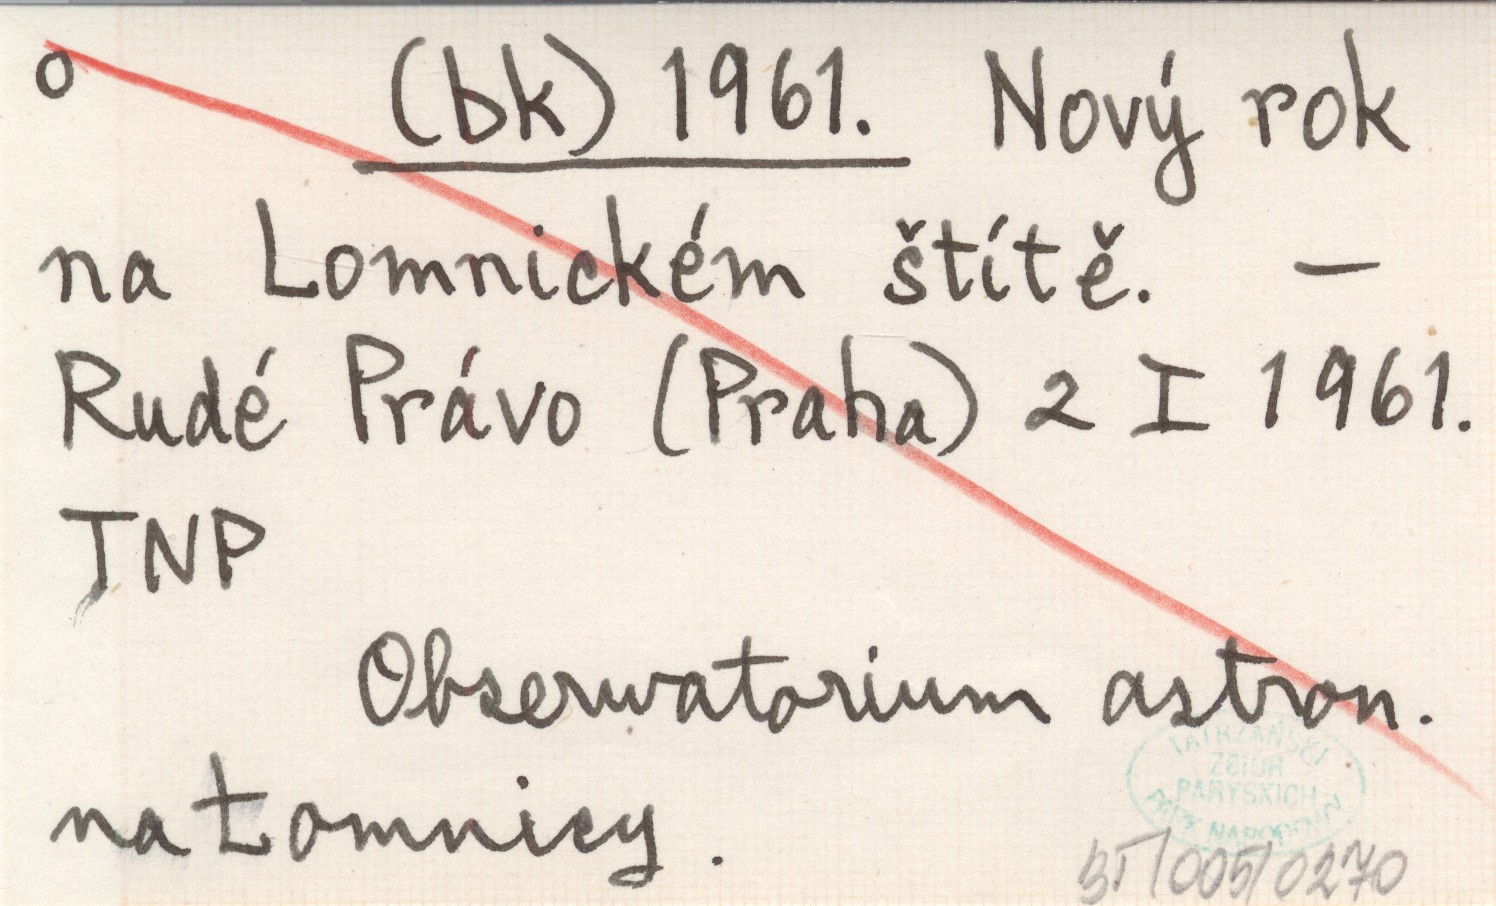 o (bk) 1961. Nový rok
na Lomnickém štítě. —
Rudé Právo (Praha) 2 I 1961.
TNP
Obserwatorium astron.
na Łomnicy.
TATRZAŃSKI
ZBIÓR
PARYSKICH
PARK NARODOWY
BT/005/0270